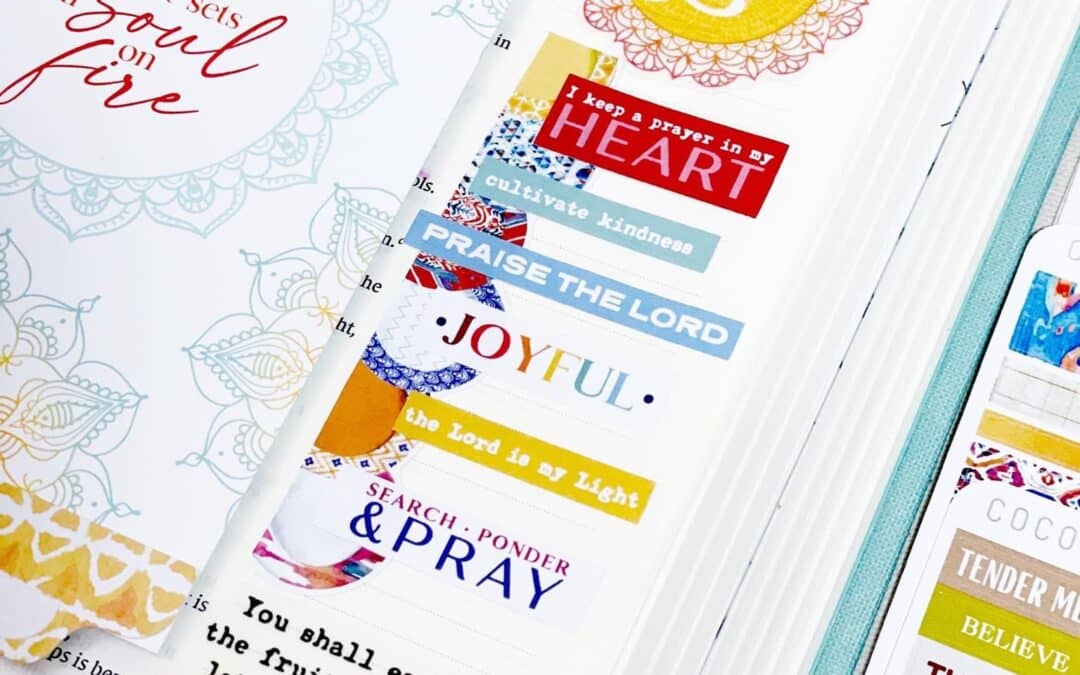 sets
soul
on
fire
in
I keep a prayer in my
HEART
cultivate kindness
PRAISE THE LORD
the
• JOYFUL •
the Lord is my Light
SEARCH · PONDER
& PRAY
is
You shall
the
is
COCO
TENDER
BELIEVE